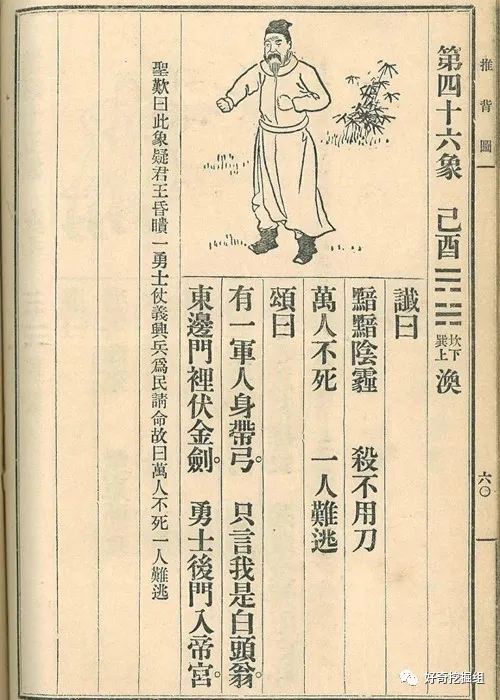 推背圖
第四十六象 己酉 坎下巽上 渙
讖曰
黯黯陰霾 殺不用刀
萬人不死 一人難逃
頌曰
有一軍人身帶弓。只言我是白頭翁。
東邊門裡伏金劍 勇士後門入帝宮。
聖歎曰此象疑君王昏瞶一勇士仗義興兵爲民請命故曰萬人不死一人難逃
六〇
好奇挖掘组